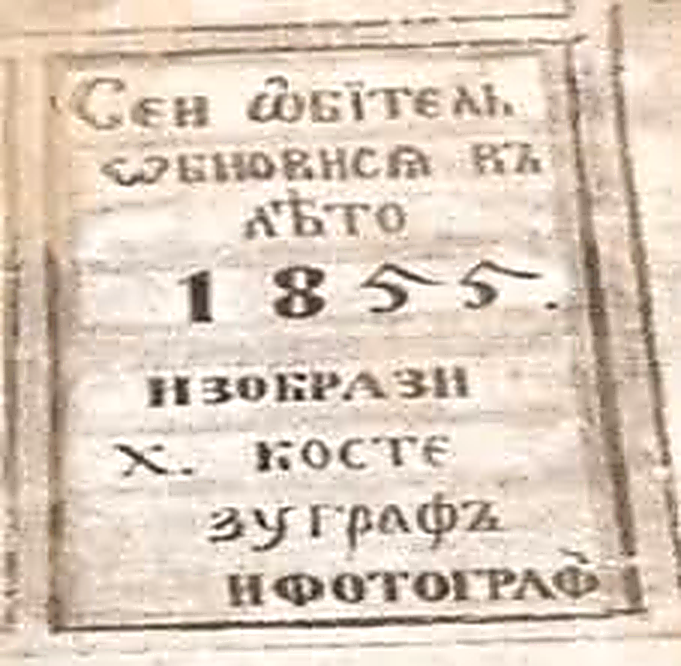 Сен ѡ҃бїтель
ѡбновисѧ въ
лѣто
1855.
изобрази
Х. Косте
зуграфъ
и фотограф̾